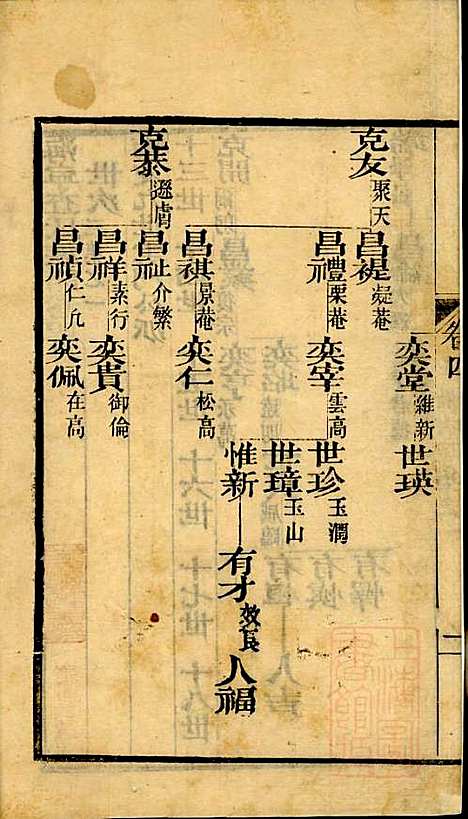 卷四
奕堂 維新 世瑛
克友 聚天 昌禔 凝菴
昌禮 豐栗菴 奕宰 雲高 世珍 玉潤
世璋 玉山
惟新 有才 效良 人福
昌祺 景菴 奕仁 松高
克恭 遜膚 昌祉 介繁
昌祥 素行 奕貴 御倫
昌禎 仁允 奕佩 在高